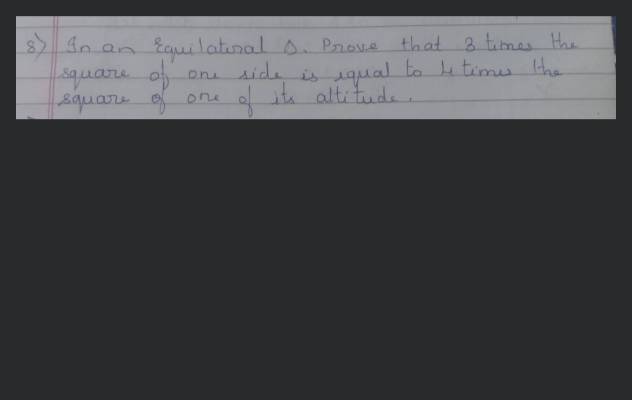 8) In an Equilateral Δ. Prove that 3 times the
square of one side is equal to 4 times the
square of one of its altitude.